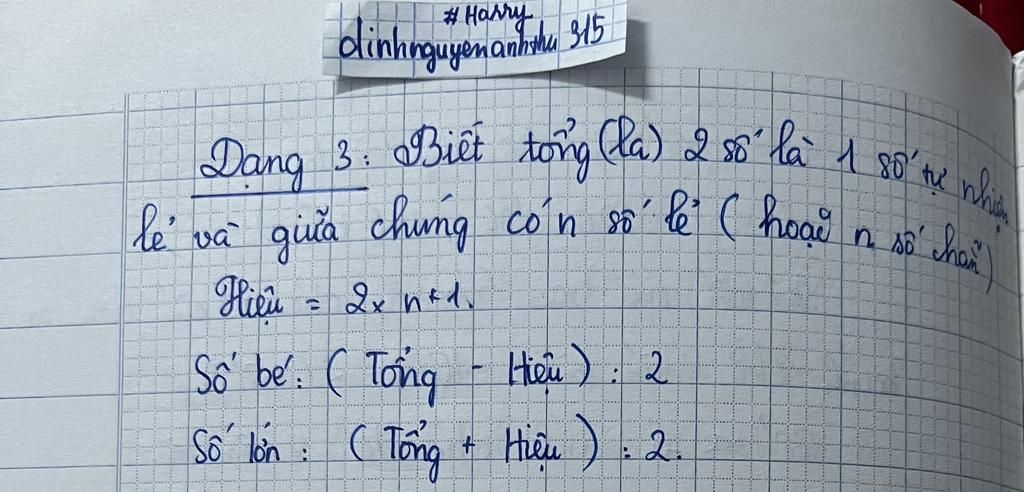 #Harry
dinhnguyenanhthu 315
Dạng 3: Biết tổng (la) 2 số là 1 số tự nhiên
lẻ và giữa chúng có n số lẻ (hoặc n số chẵn)
Hiệu = 2 x n + 1.
Số bé: (Tổng - Hiệu) : 2
Số lớn: (Tổng + Hiệu) : 2.